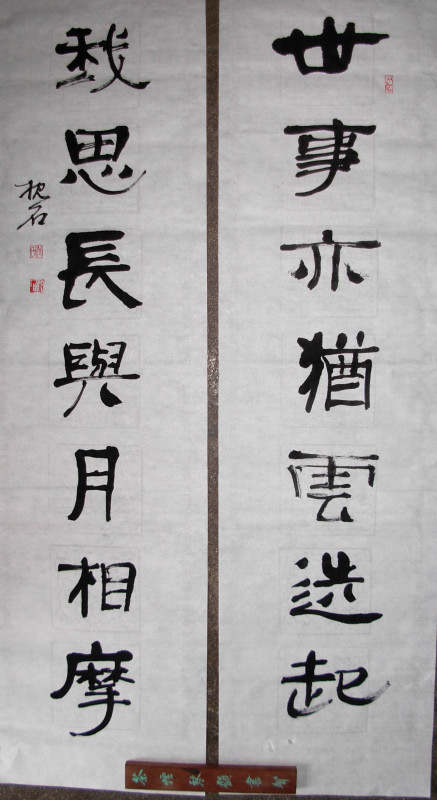 世事亦猶雲迭起
我思長與月相摩
枕石